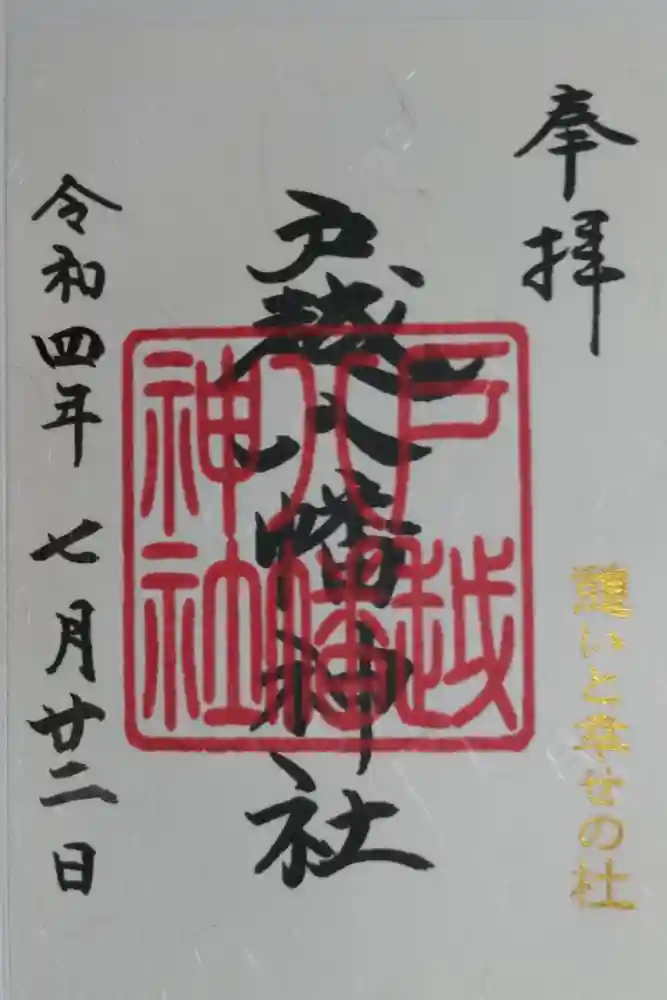 奉拝
願いと幸せの杜
戸越八幡神社
戸越
八幡
神社
令和四年七月廿二日